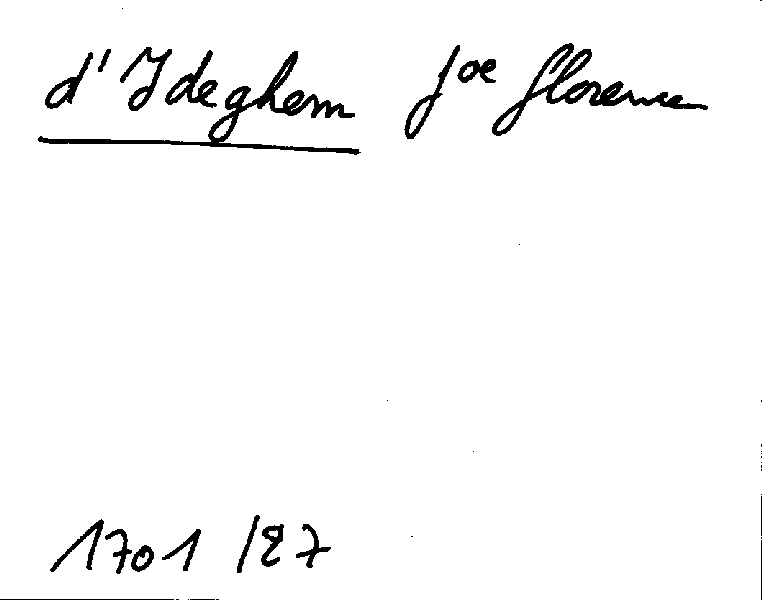 d'Ideghem Joe Florence
1701/27